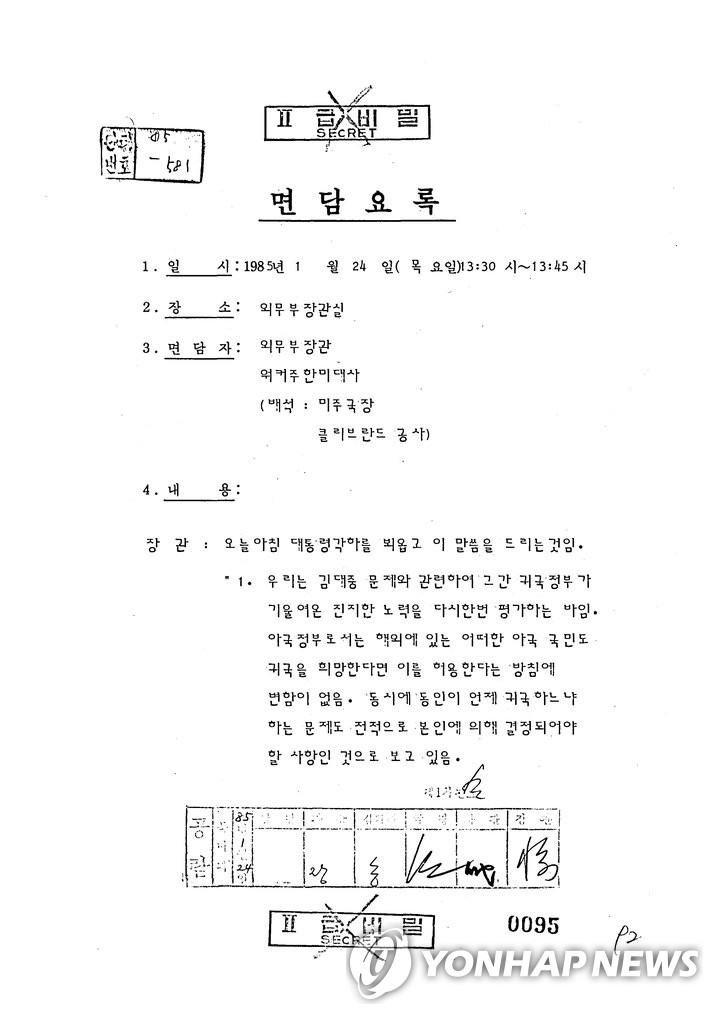 II 급 비 밀
SECRET
번호
85
-581
면 담 요 록
1. 일 시: 1985년 1 월 24 일( 목 요일)13:30 시~13:45 시
2. 장 소: 외무부장관실
3. 면 담 자: 외무부장관
워커주한미대사
(배석 : 미주국장
클리브란드 공사)
4. 내 용:
장 관 : 오늘아침 대통령각하를 뵈옵고 이 말씀을 드리는것임.
" 1. 우리는 김대중 문제와 관련하여 그간 귀국정부가
기울여온 진지한 노력을 다시한번 평가하는 바임.
아국정부로서는 해외에 있는 어떠한 아국 국민도
귀국을 희망한다면 이를 허용한다는 방침에
변함이 없음. 동시에 동인이 언제 귀국하느냐
하는 문제도 전적으로 본인에 의해 결정되어야
할 사항인 것으로 보고 있음.
공람
85
1
24
II 급 비 밀
SECRET
0095
P2
YONHAP NEWS